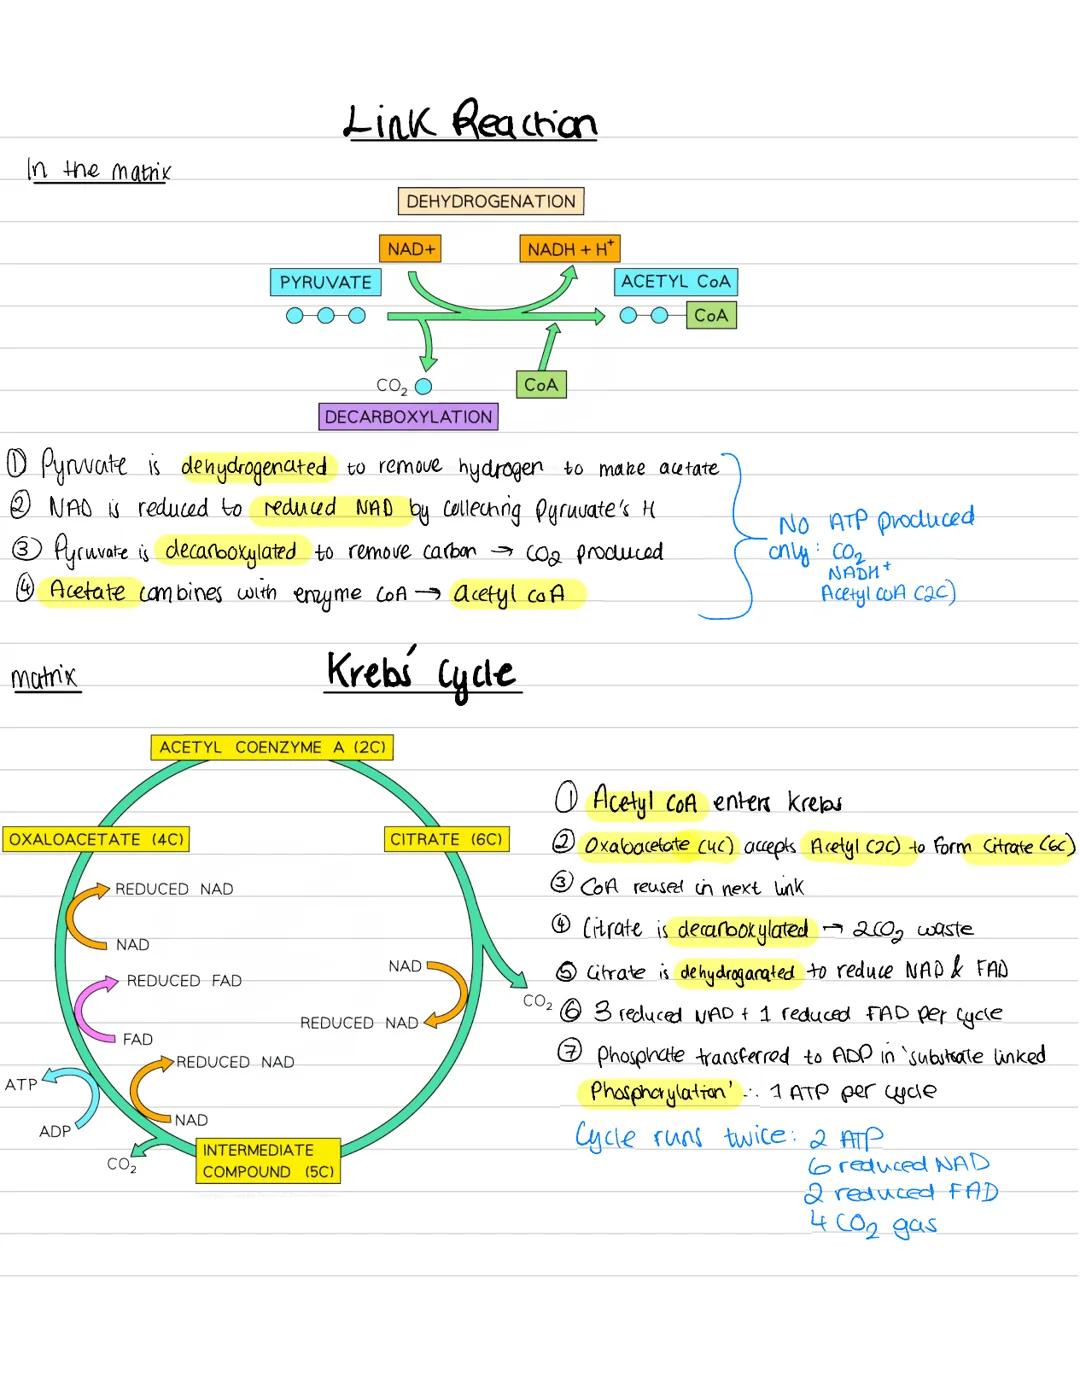 Link Reaction
In the matrix
DEHYDROGENATION
NAD+
NADH + H⁺
PYRUVATE
ACETYL CoA
CoA
CO₂
CoA
DECARBOXYLATION
① Pyruvate is dehydrogenated to remove hydrogen to make acetate
② NAD is reduced to reduced NAD by collecting Pyruvate's H
③ Pyruvate is decarboxylated to remove carbon → CO₂ produced
④ Acetate combines with enzyme CoA → acetyl coA
No ATP produced
only: CO₂
NADH⁺
Acetyl coA (2C)
matrix
Krebs' Cycle
ACETYL COENZYME A (2C)
OXALOACETATE (4C)
CITRATE (6C)
REDUCED NAD
NAD
REDUCED FAD
FAD
NAD
REDUCED NAD
CO₂
REDUCED NAD
NAD
ATP
ADP
CO₂
INTERMEDIATE
COMPOUND (5C)
① Acetyl coA enters krebs
② Oxaloacetate (4C) accepts Acetyl (2C) to form Citrate (6C)
③ CoA reused in next link
④ Citrate is decarboxylated → 2CO₂ waste
⑤ Citrate is dehydroganated to reduce NAD & FAD
⑥ 3 reduced NAD + 1 reduced FAD per cycle
⑦ Phosphate transferred to ADP in 'substrate linked
Phosphorylation' ∴ 1 ATP per cycle
Cycle runs twice: 2 ATP
6 reduced NAD
2 reduced FAD
4 CO₂ gas